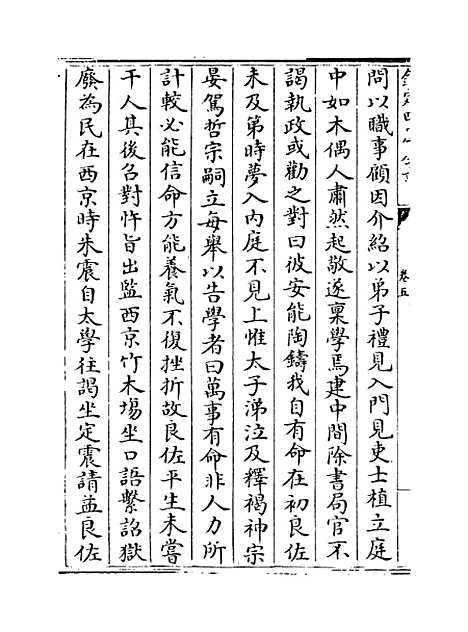 卷五
問以職事顧因介紹以弟子禮見入門見吏士植立庭
中如木偶人肅然起敬遂稟學焉建中間除書局官不
謁執政或勸之對曰彼安能陶鑄我自有命在初良佐
未及第時夢入内庭不見上惟太子涕泣及釋褐神宗
晏駕哲宗嗣立每舉以告學者曰萬事有命非人力所
計較必能信命方能養氣不復挫折故良佐平生未嘗
干人其後召對忤旨出監西京竹木塲坐口語繫詔獄
廢為民在西京時朱震自太學往謁坐定震請益良佐